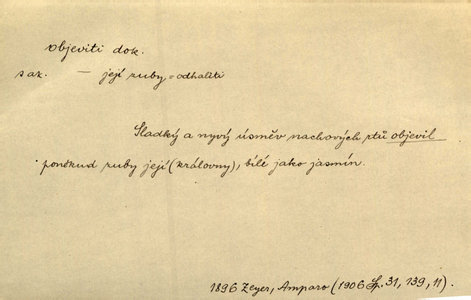 objeviti dok.
s ak. — její zuby = odhaliti
Sladký a nyvý úsměv nachových rtů objevil
poněkud zuby její (královny), bílé jako jasmín.
1896 Zeyer, Amparo (1906 Sp. 31, 139, 11).